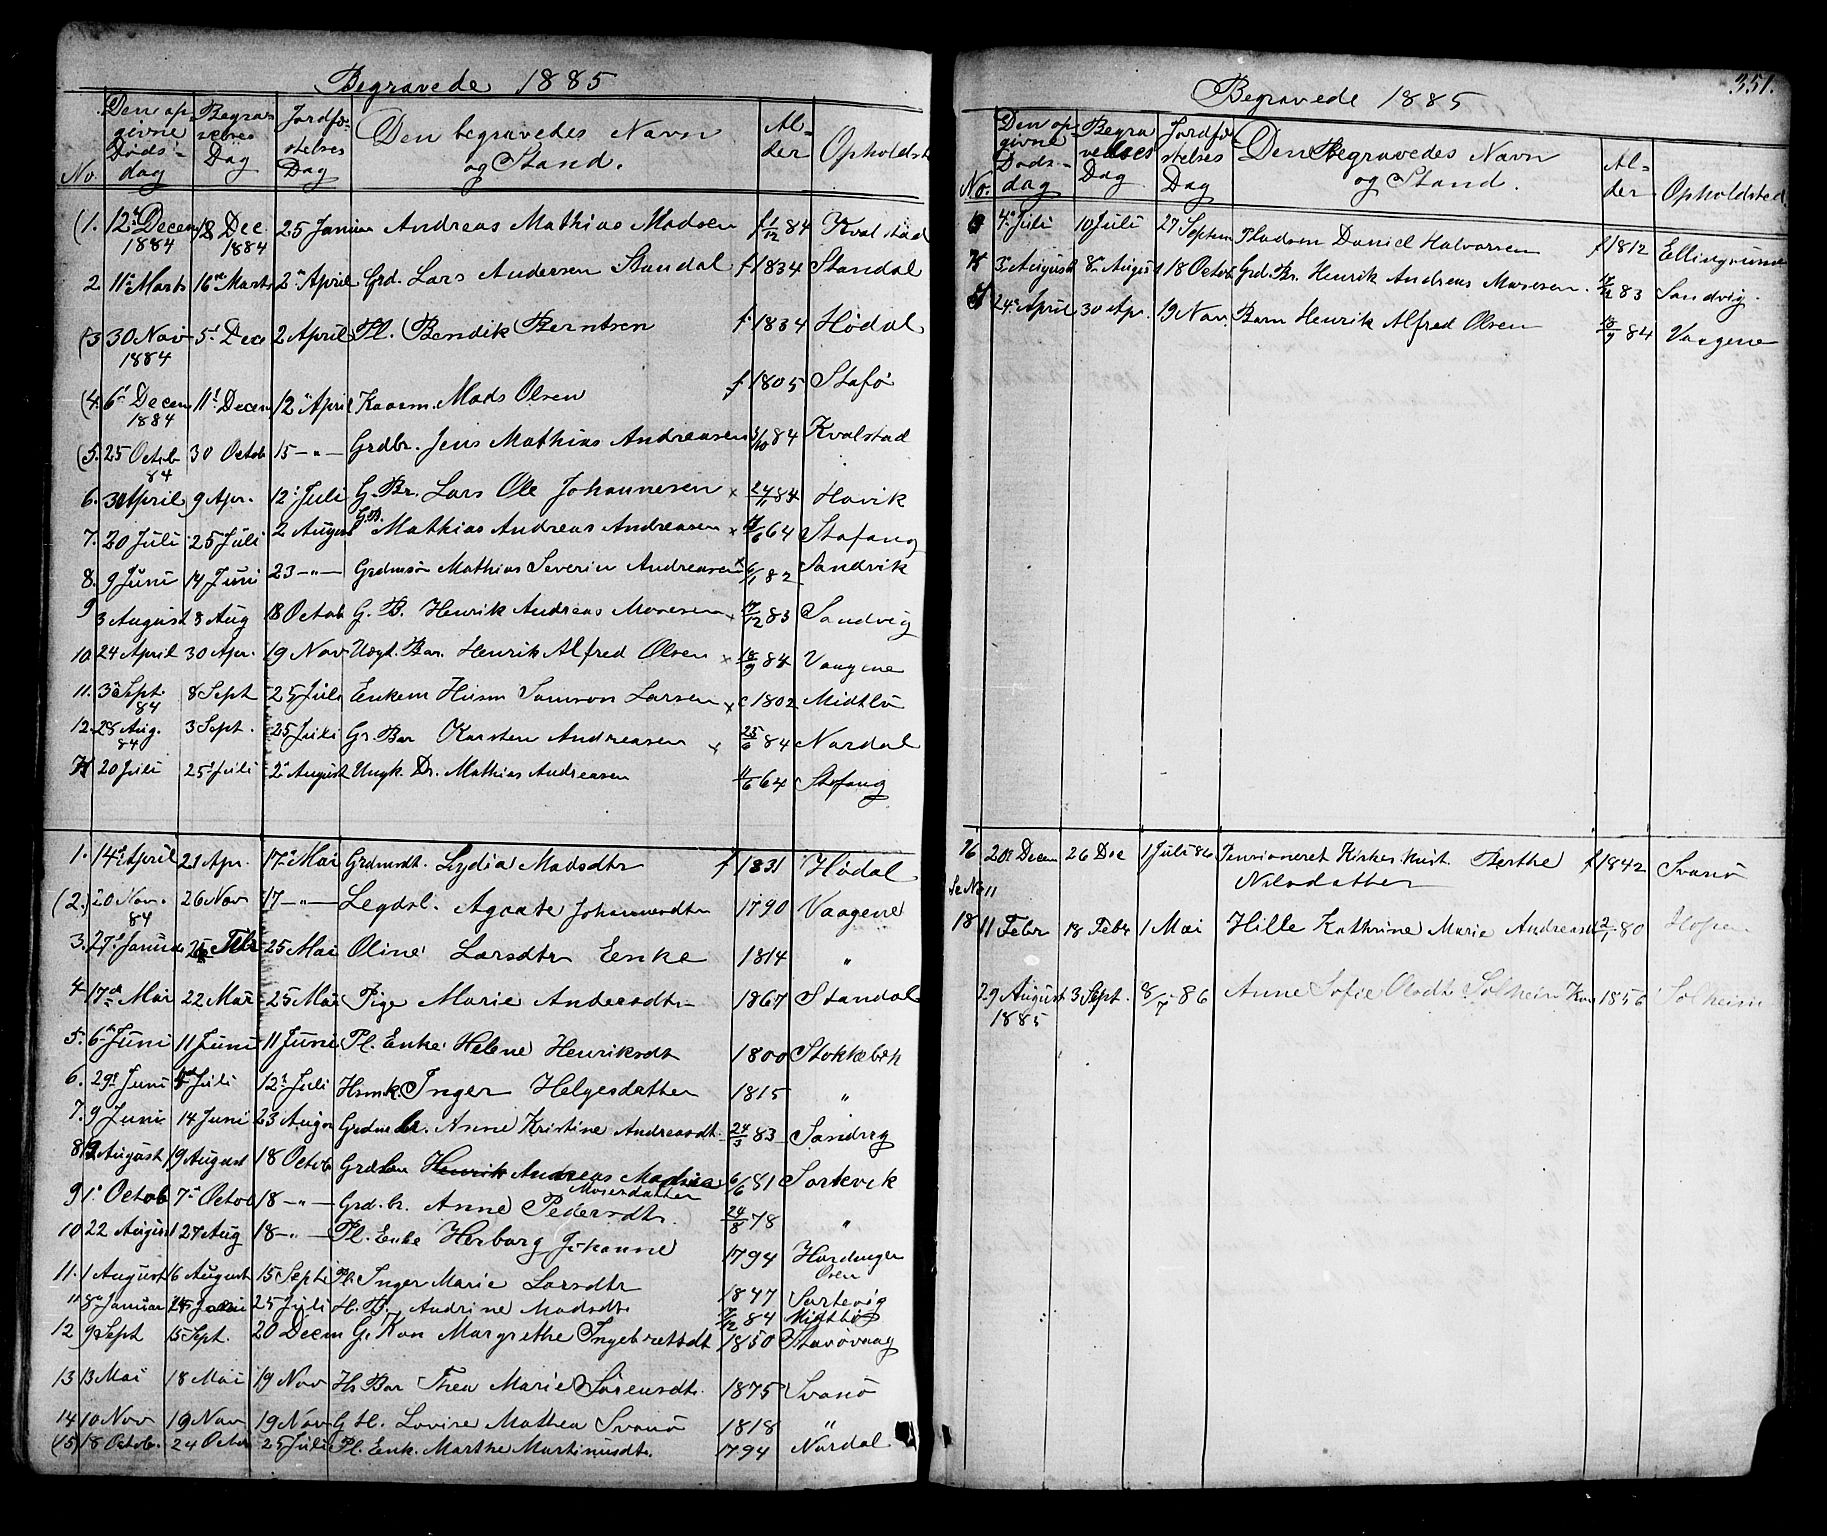 Begravede 1885
No. Den opgivne Dødsdag Begravelses Dag Jordfæstelses Dag Den begravedes Navn og Stand. Alder Opholdst
(1. 12te Decem 1884 18 Dec. 1884 25 Januar Andreas Mathias Madsen f 1/12 84 Kvalstad
2. 11te Marts 16de Marts 2den April Grd. Lars Andersen Standal f 1834 Standal
(3 30 Nov 1884 5t Dec 2 April Pl. Bendik Berntsen f. 1834 Hødal
(4. 6te Decem 1884 11t Decem 12te April Kaarm. Mads Olsen f 1805 Stafø
(5. 25 Octob 84 30 Octob 15 -"- Grdbr. Jens Mathias Andreasen 3/10 84 Kvalstad
6. 3 April 9 Apr. 12t Juli G. Br. Lars Ole Johannesen x 24/11 84 Havik
7. 20 Juli 25 Juli 2 August G.B. Mathias Andreas Andreasen x /6 64 Stafang
8. 9 Juni 14 Juni 23 -"- Grdmsøn Mathias Severin Andreasen x 6/1 82 Sandvik
9 3 August 8 Aug 18 Octob G. B. Henrik Andreas Mosesen x 17/12 83 Sandvig
10. 24 April 30 Apr. 19 Nov Uægt. Bar. Henrik Alfred Olsen x 18/9 84 Vaagene
11. 3de Sept. 84 8 Sept 25 Juli Enkem Husm Samson Larsen x c 1802 Midtbø
12. 28 Aug. 84 3 Sept. 25 Juli Gr. Bar Karsten Andreasen x 25/6 84 Nardal
20 Juli 25 Juli 2 August Ungk. Dr. Mathias Andreasen 11/6 64 Stafang
1. 14de April 21 Apr. 17de Mai Grdmsdt. Lydia Madsdtr f 1831 Hødal
(2.) 20 Nov. 84 26 Nov 17 -"- Legdsl. Agaate Johannesdtr 1790 Vaagene
3. 27de Januar Febr 25 Mai Oline Larsdtr Enke 1814 "
4 17de Mai 22 Mai 25 Mai Pige Marie Andersdtr 1867 Standal
5. 6te Juni 11 Juni 11 Juni Pl. Enke Helene Henriksdt 1800 Stokkebøk
6. 29de Juni 5te Juli 12te Juli Hsmk. Inger Helgesdatter 1815 "
7. 9 Juni 14 Juni 23 Augus Grdm br. Anne Kristine Andreasdt. 24/3 83 Sandvig
8. 13 August 19 August 18 Octob Grdbarn Henrik Andreas Madsen Mosesdatter 6/6 81 Sørkvik
9 1t Octob 7de Octob 18 -"- Grd. br. Anne Pedersdtr. 24/8 78 "
10 22 August 27 Aug 18 -"- Pl. Enke Herborg Johanne 1794 Hardanger Osen
11. 1 August 6 August 15 Septe Pl. Inger Marie Larsdtr 1847 Sørtevig
" 8de Januar 25 Juli H. B. Andrine Madsdtr /12 84 Midtbø
12 9 Sept 15 Sept. 20 Decem G. Kon Margrethe Ingebretsdt 1850 Stavøvaag
13 13 Mai 18 Mai 19 Nov Hs Bar Thea Marie Sørensdtr. 1875 Svanø
14 10 Nov 19 Nov 19 Nov G H. Lovise Mathea Svanø 1818 "
(15) 18 Octob. 24 Octor 25 Juli Pl. Enk. Marthe Martinusdtr. 1794 Nardal
351.
Begravede 1885
No. Den opgivne Dødsdag Begravelses Dag Jordfæstelses Dag Den Begravedes Navn og Stand. Alder Opholdsted
4de Juli 10 Juli 27 Septem Pladsm Daniel Halvorsen f 1812 Ellingsund
3 August 8de August 18 Octob Grd. Br. Henrik Andreas Mosesen. 17/12 83 Sandvig.
24de April 30 Apr. 19 Nov. Barn Henrik Alfred Olsen 18/9 84 Vaagene
16 20de Decem 26 Dec 1 Juli 86 Pensioneret Kirkes Kust. Berthe Nilsdatter f 1842 Svanø
Se No 11
18 11 Febr 18 Febr 1 Mai Hille Kathrine Marie Andreasdt 12/1 80 Hopen
29 August 1885 3 Sept. 8/ 86 Anne Sofie Olsdt Solheim Kon 1856 Solheim